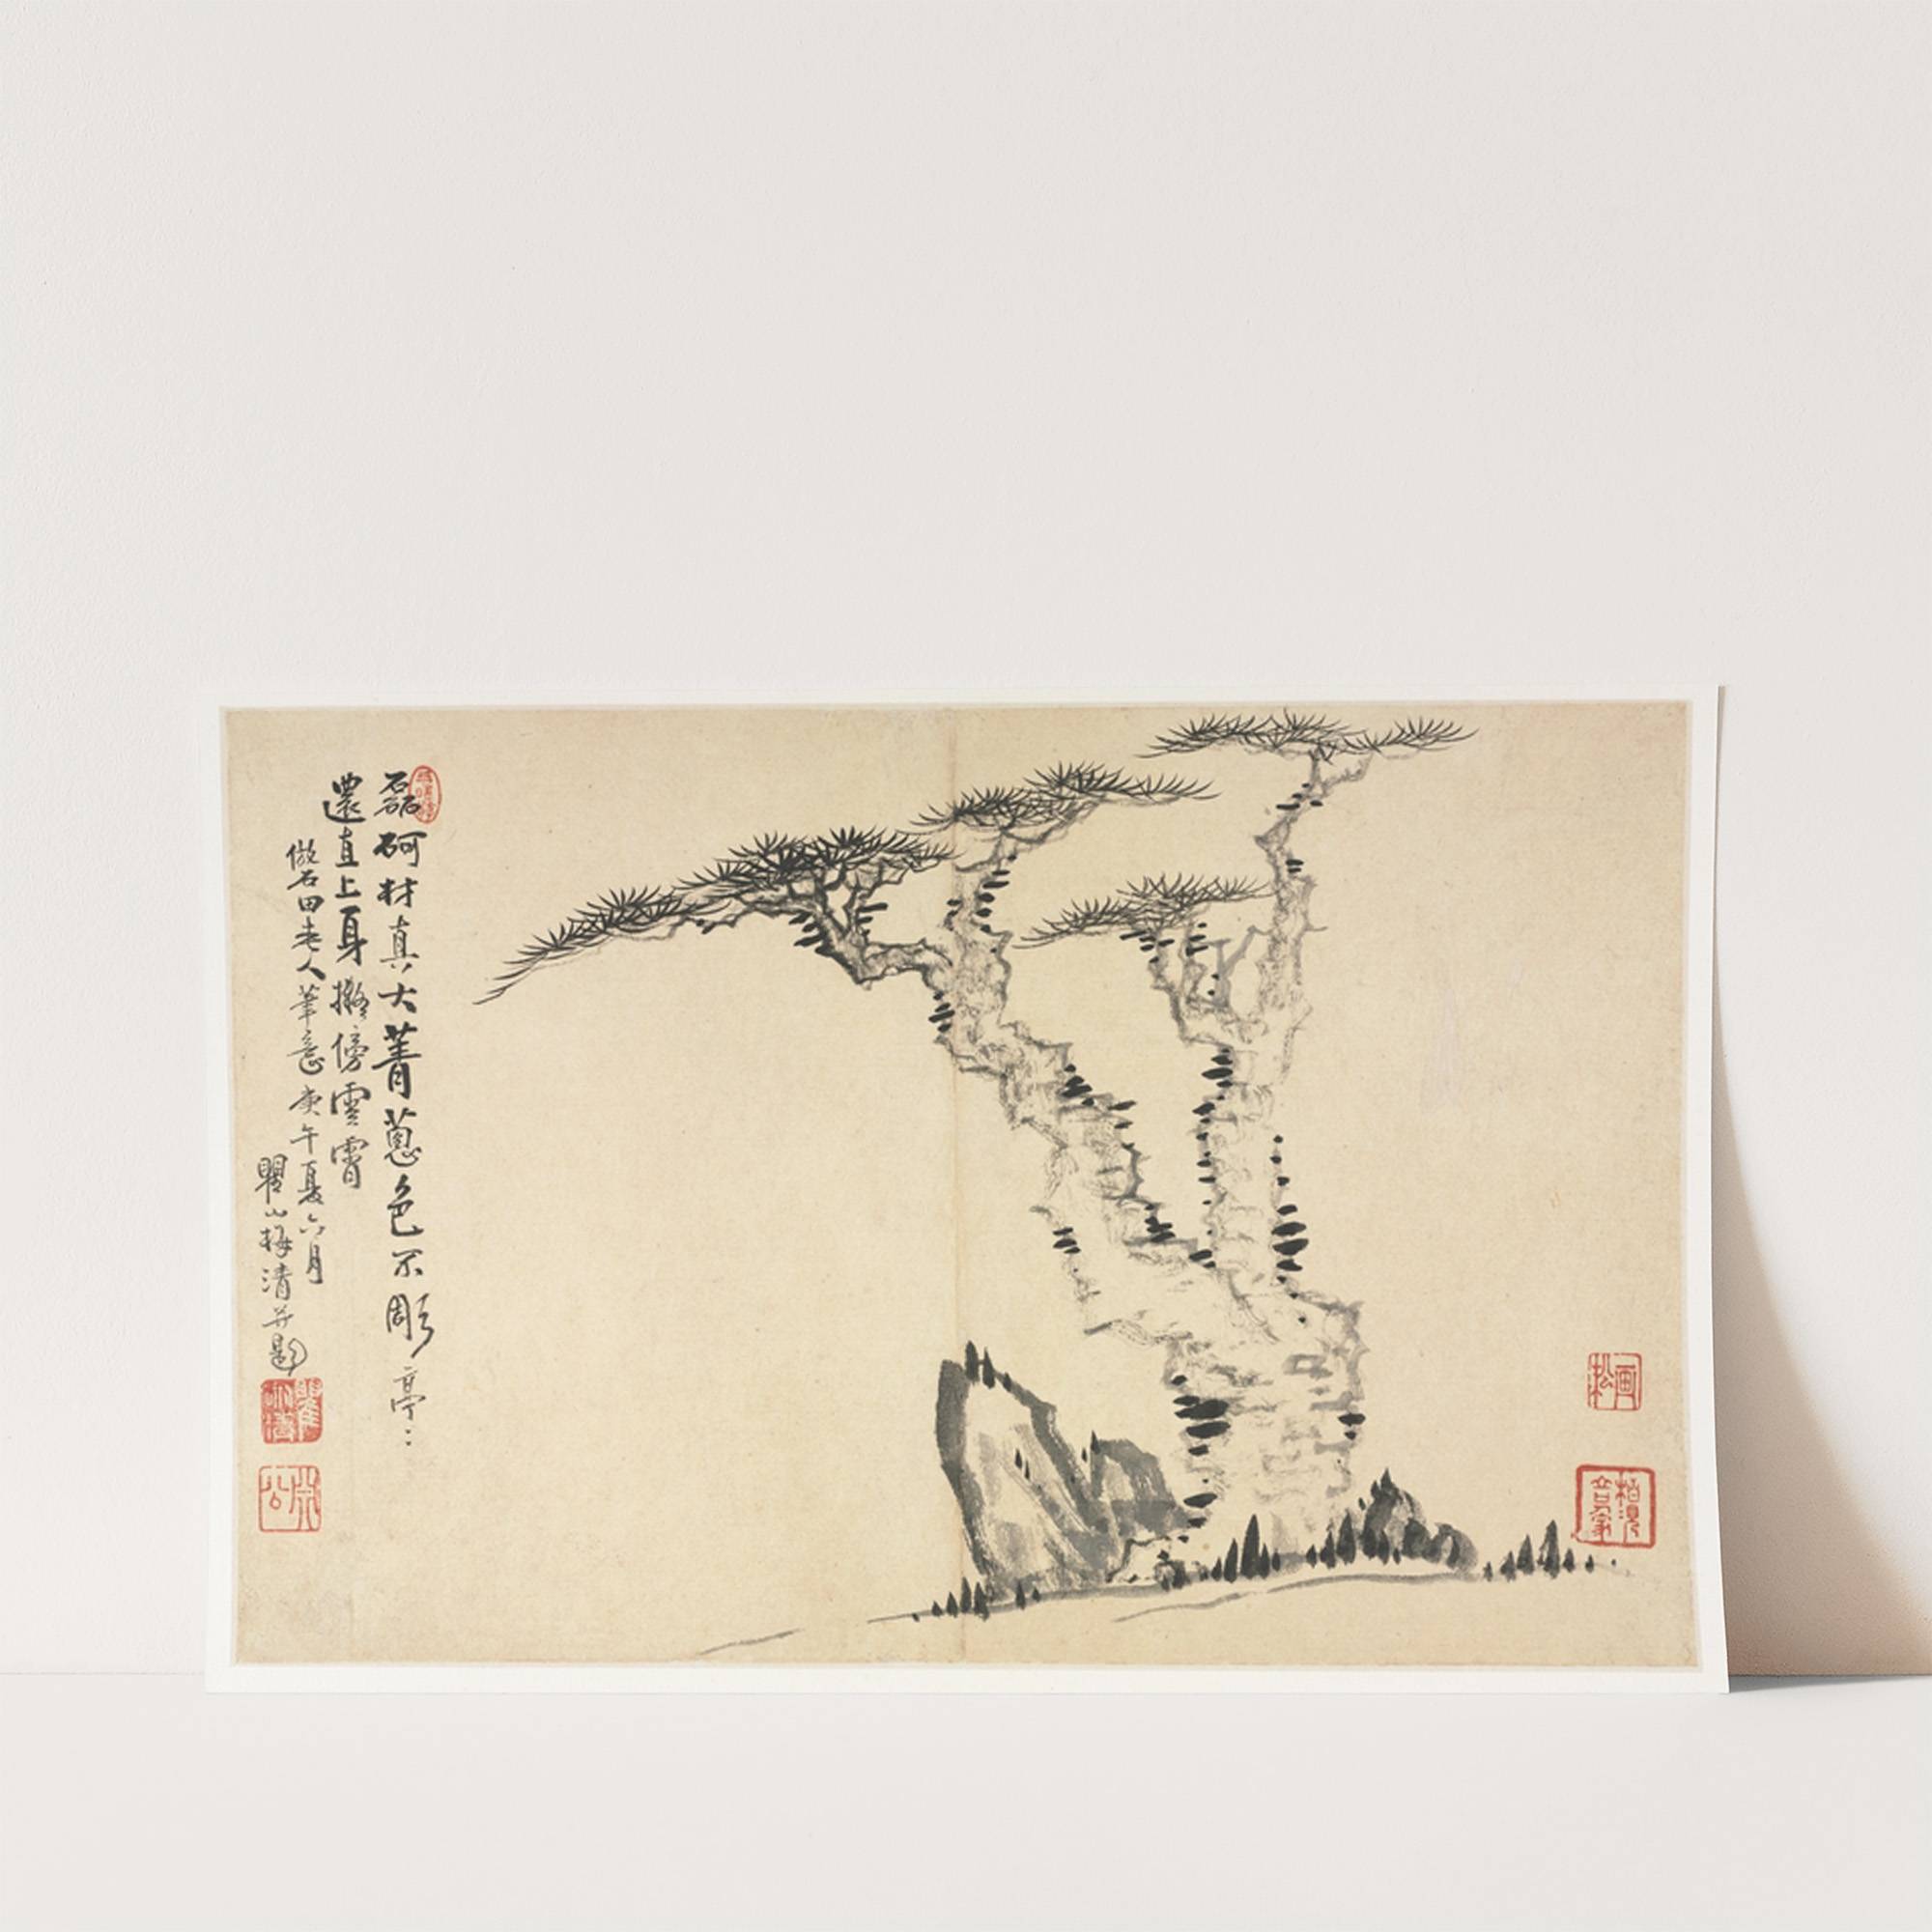 磊砢材真大菁蔥色不彫亭〻
還直上身擬傍雲霄
倣石田老人筆意庚午夏六月
瞿山梅清并題